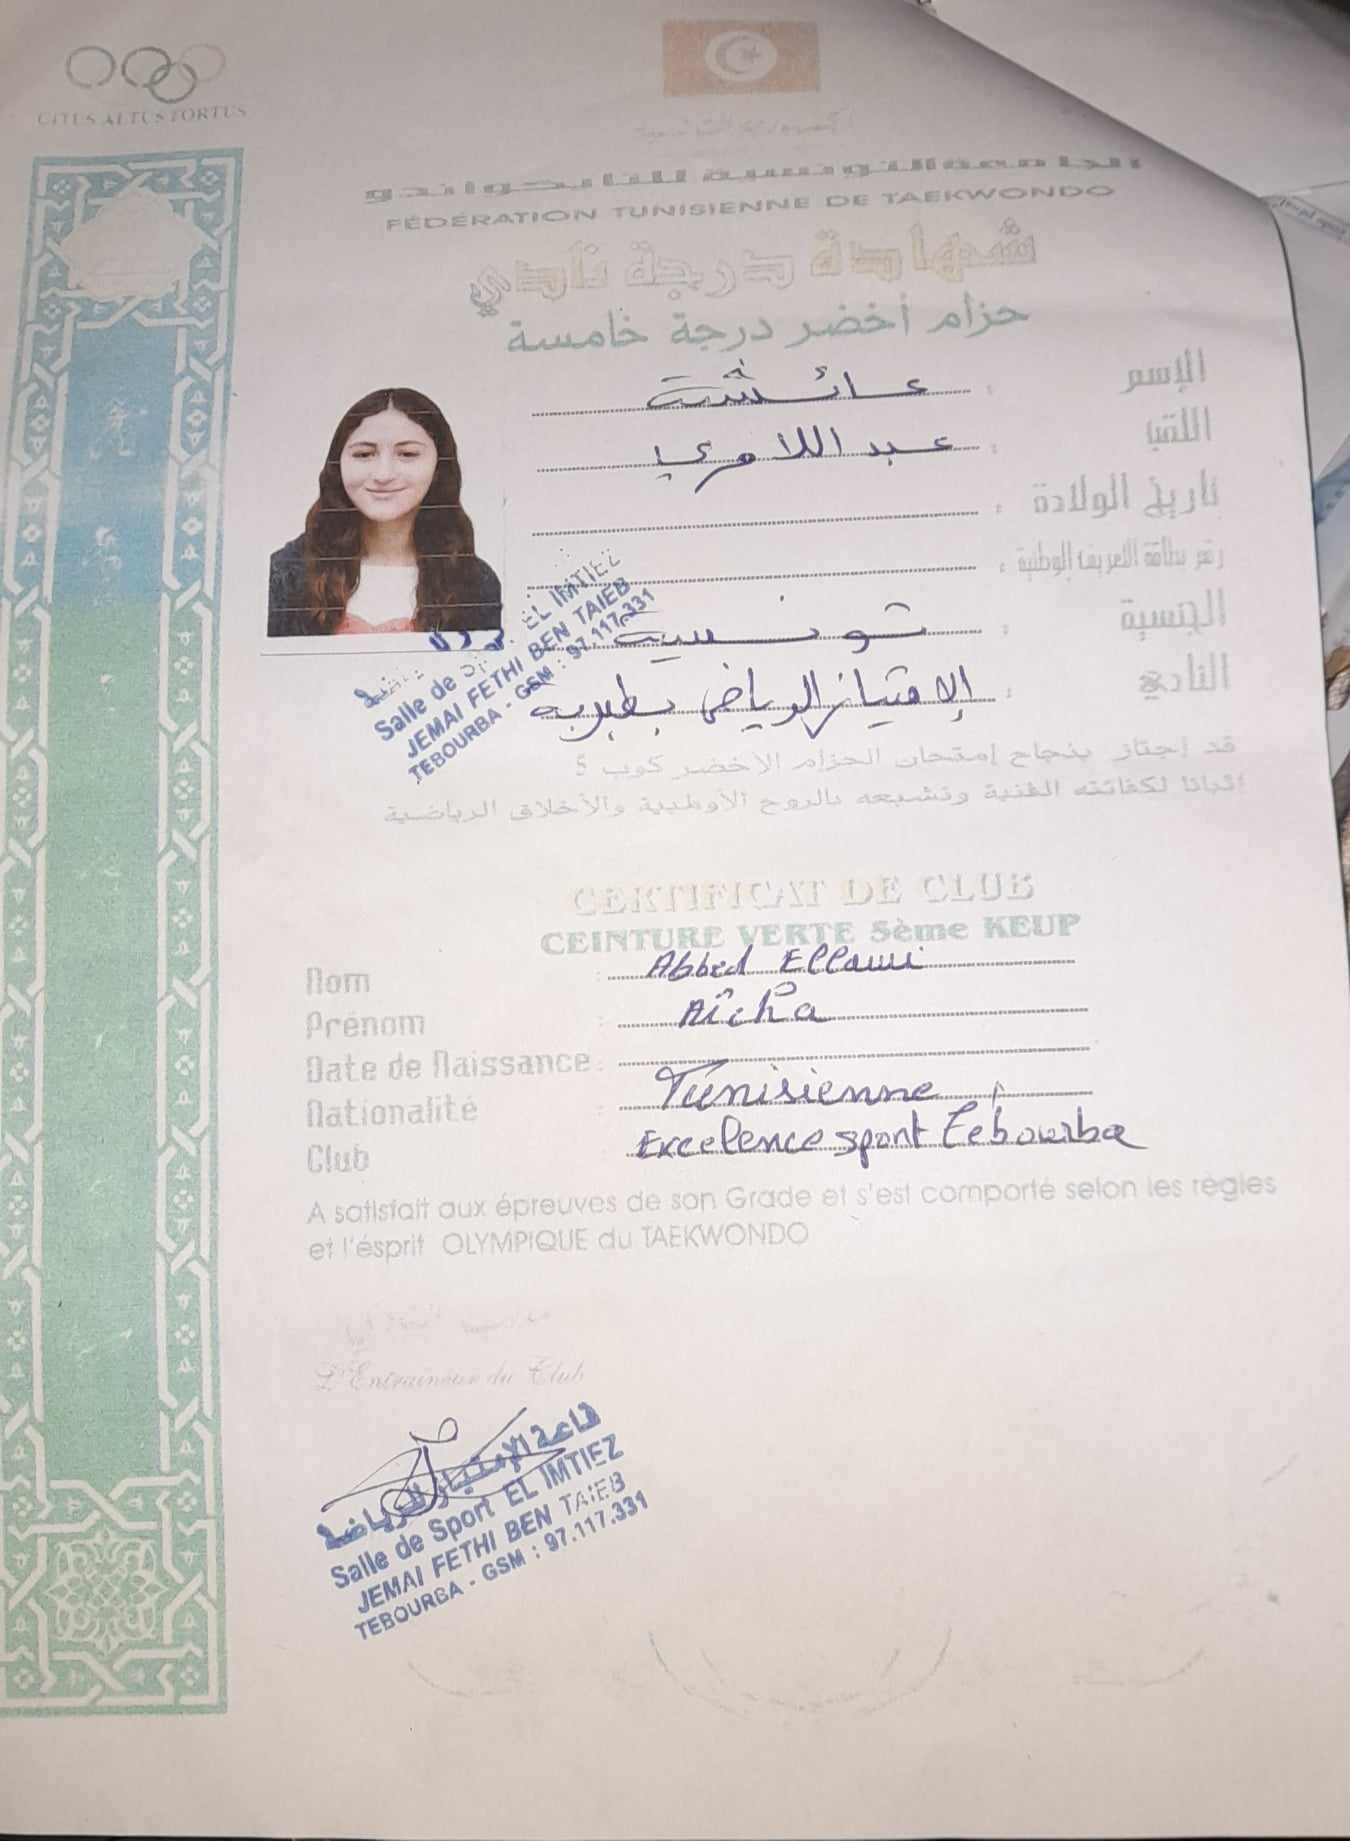 CITUS ALTUS FORTUS
الجامعة التونسية للتايكواندو
FÉDÉRATION TUNISIENNE DE TAEKWONDO
شهادة درجة نادي
حزام أخضر درجة خامسة
الإسم : عائشة
اللقب : عبد اللاوي
تاريخ الولادة :
رقم بطاقة التعريف الوطنية :
الجنسية : تونسية
النادي : الإمتياز الرياضي بطبربة
EL IMTIEZ
Salle de
JEMAI FETHI BEN TAIEB
TEBOURBA - GSM : 97.117.331
قد إجتاز بنجاح إمتحان الحزام الأخضر كوب 5
إثباتا لكفائته الفنية وتشبعه بالروح الأولمبية والأخلاق الرياضية
CERTIFICAT DE CLUB
CEINTURE VERTE 5ème KEUP
Nom : Abbed Ellawi
Prénom : Aïcha
Date de Naissance :
Nationalité : Tunisienne
Club Excelence sport Tébourba
A satisfait aux épreuves de son Grade et s'est comporté selon les règles
et l'ésprit OLYMPIQUE du TAEKWONDO
L'Entraineur du Club
قاعة الإمتياز الرياضية
Salle de Sport EL IMTIEZ
JEMAI FETHI BEN TAIEB
TEBOURBA - GSM : 97.117.331